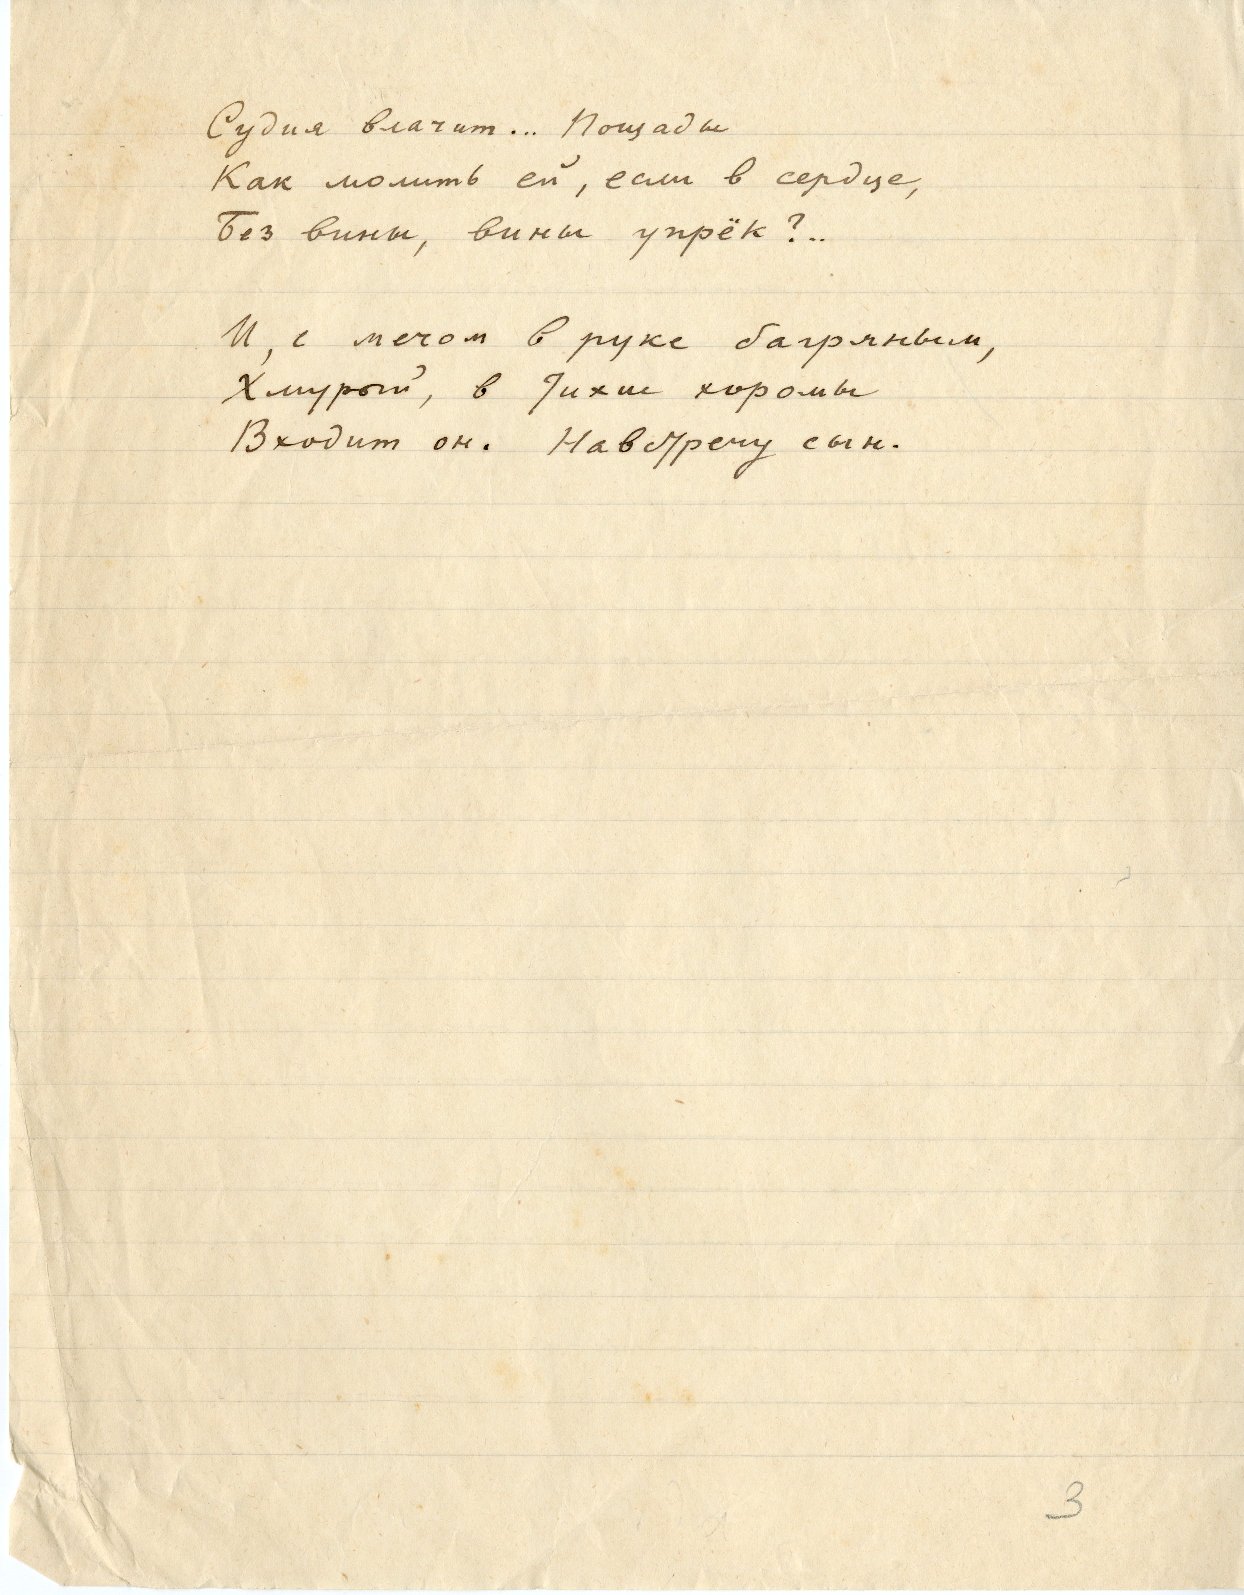 Судия влачит... Пощады
Как молить ей, если в сердце,
Без вины, вины упрёк?..
И, с мечом в руке багряным,
Хмурый, в тихие хоромы
Входит он. Навстречу сын.
3